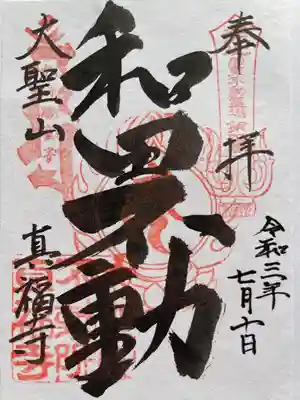 奉拝
令和三年
七月十日
和田不動
大聖山
真福寺